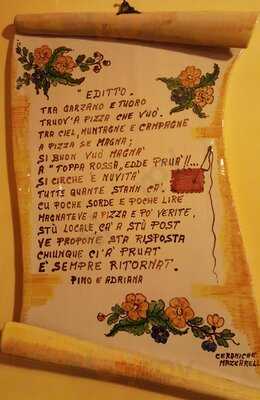 "EDITTO.
TRA GARZANO E TUORO
TRUOV'A PIZZA CHE VUO'.
TRA CIEL, MUNTAGNE E CAMPAGNE
A PIZZA SE MAGNA;
SI BUON VUÓ MAGNÁ
A "TOPPA ROSSA, EDDE PRUÁ"!!...
SI CIRCHE 'E NUVITÁ
TUTTE QUANTE STANN CÁ.
CU POCHE SORDE E POCHE LIRE
MAGNATEVE A PIZZA E PÓ VERITE,
STÙ LOCALE, CÁ A STÙ POST
VE PROPONE STA RISPOSTA
CHIUNQUE CI'A PRUAT
E' SEMPRE RITORNAT.
PINO E ADRIANA
CERAMICHE
MAZZARELL